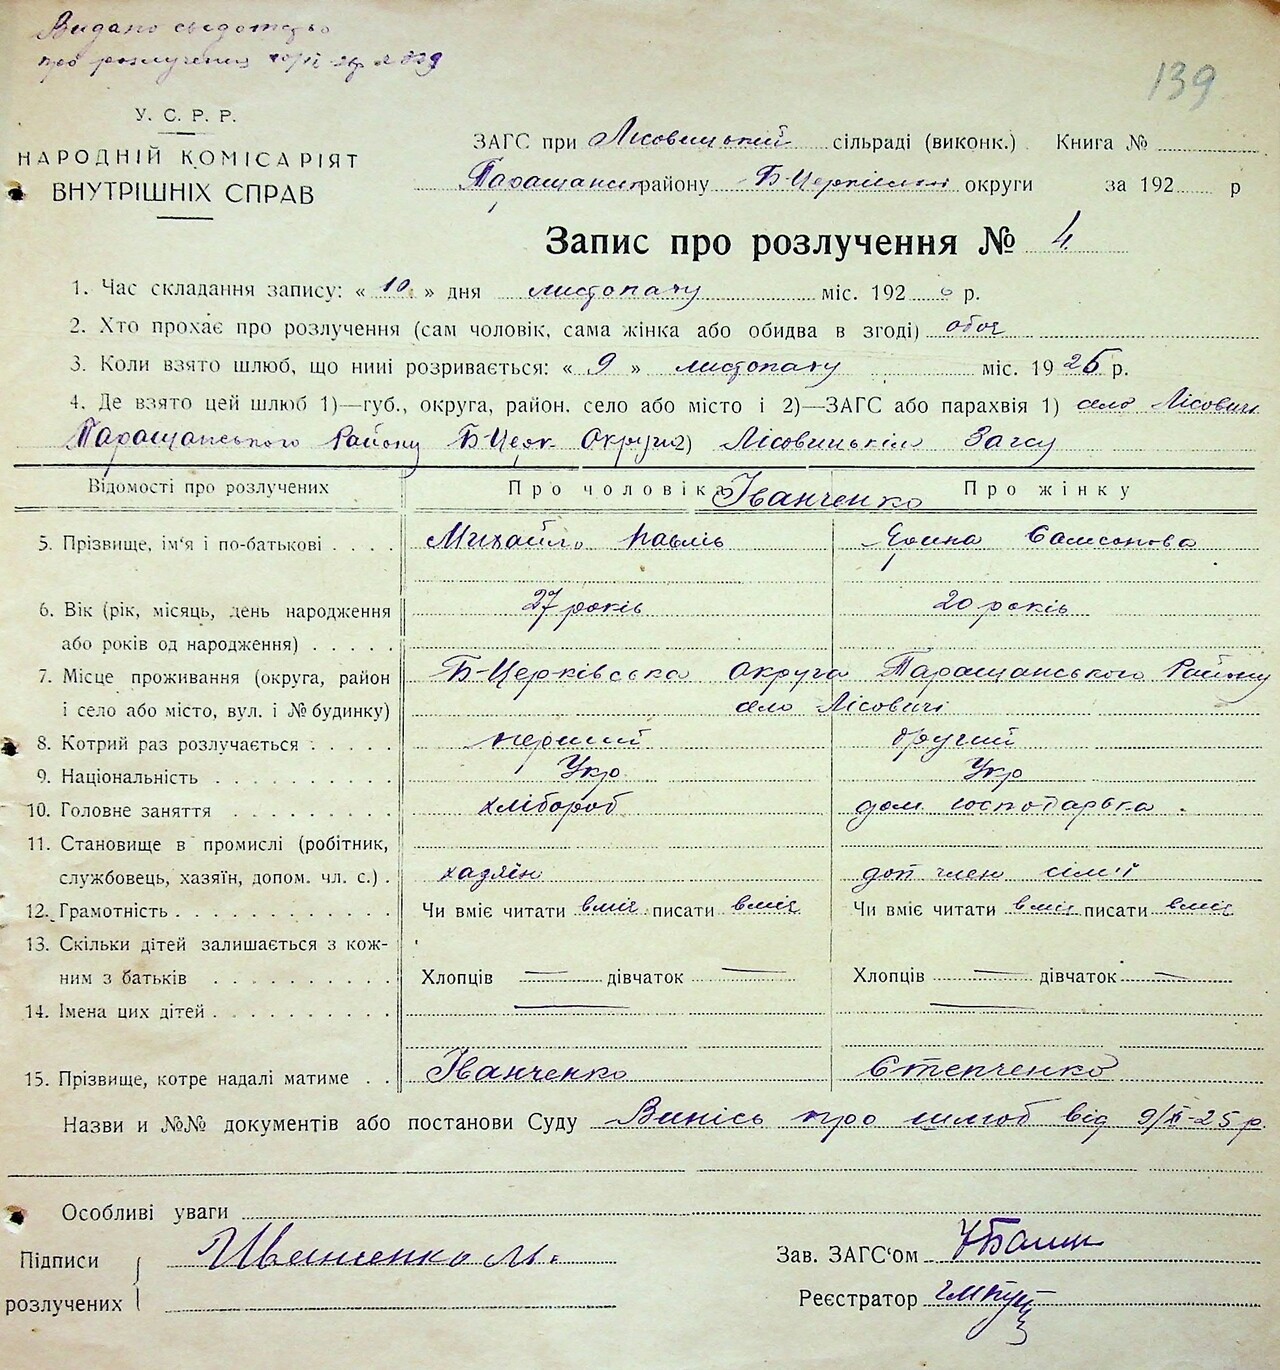 Видано свідотство
про розлучення
139
У. С. Р. Р.
НАРОДНІЙ КОМІСАРІЯТ
ВНУТРІШНІХ СПРАВ
ЗАГС при Лісовицький сільраді (виконк.) Книга №
Таращанськ району Б-Церківської округи за 192 р
Запис про розлучення № 4
1. Час складання запису: « 10 » дня листопаду міс. 192 6 р.
2. Хто прохає про розлучення (сам чоловік, сама жінка або обидва в згоді) обоє
3. Коли взято шлюб, що нині розривається: « 9 » листопаду міс. 19 25 р.
4. Де взято цей шлюб 1)—губ., округа, район. село або місто і 2)—ЗАГС або парахвія 1) село Лісовичі
Таращанського Району Б-Церк Округи 2) Лісовицькім Загсу
Відомості про розлучених Про чоловіка Іванченко Про жінку
5. Прізвище, ім'я і по-батькові Михайло Павлів Ярина Самсонова
6. Вік (рік, місяць, день народження 27 років 20 років
або років од народження)
7. Місце проживання (округа, район Б-Церківська Округа Таращанського Району
і село або місто, вул. і № будинку) село Лісовичі
8. Котрий раз розлучається перший другий
9. Національність Укр Укр
10. Головне заняття хлібороб дом. господарька
11. Становище в промислі (робітник,
службовець, хазяїн, допом. чл. с.) хазяїн доп член сім'ї
12. Грамотність Чи вміє читати вміє писати вміє Чи вміє читати вміє писати вміє
13. Скільки дітей залишається з кож-
ним з батьків Хлопців — дівчаток — Хлопців — дівчаток —
14. Імена цих дітей — —
15. Прізвище, котре надалі матиме Іванченко Степченко
Назви и №№ документів або постанови Суду Випісь про шлюб від 9/XI-25 р.
Особливі уваги
Підписи Иваненко М. Зав. ЗАГС'ом
розлучених Реєстратор